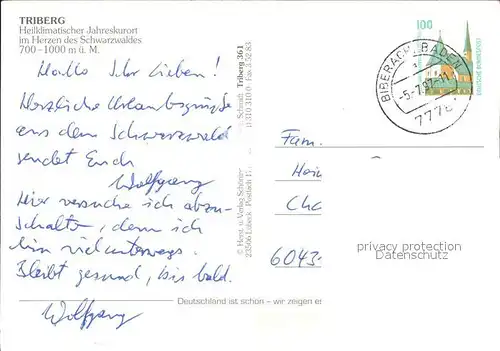 TRIBERG
Heilklimatischer Jahreskurort
im Herzen des Schwarzwaldes
700-1000 m ü. M.
Hallo Ihr Lieben!
Herzliche Urlaubsgrüße
aus dem Schwarzwald
sendet Euch
Wolfgang
Hier versuche ich abzu-
schalten, denn ich
bin viel unterwegs.
Bleibt gesund, bis bald.
Wolfgang
© Horst u. Verlag
23506 Lübeck · Postfach
Schmidt · Triberg 361
Fax 5 52 83
100
DEUTSCHE BUNDESPOST
BIBERACH, BADEN
-5.-7.97-11
7778
Fam.
6043-
privacy protection
Datenschutz
Deutschland ist schön – wir zeigen